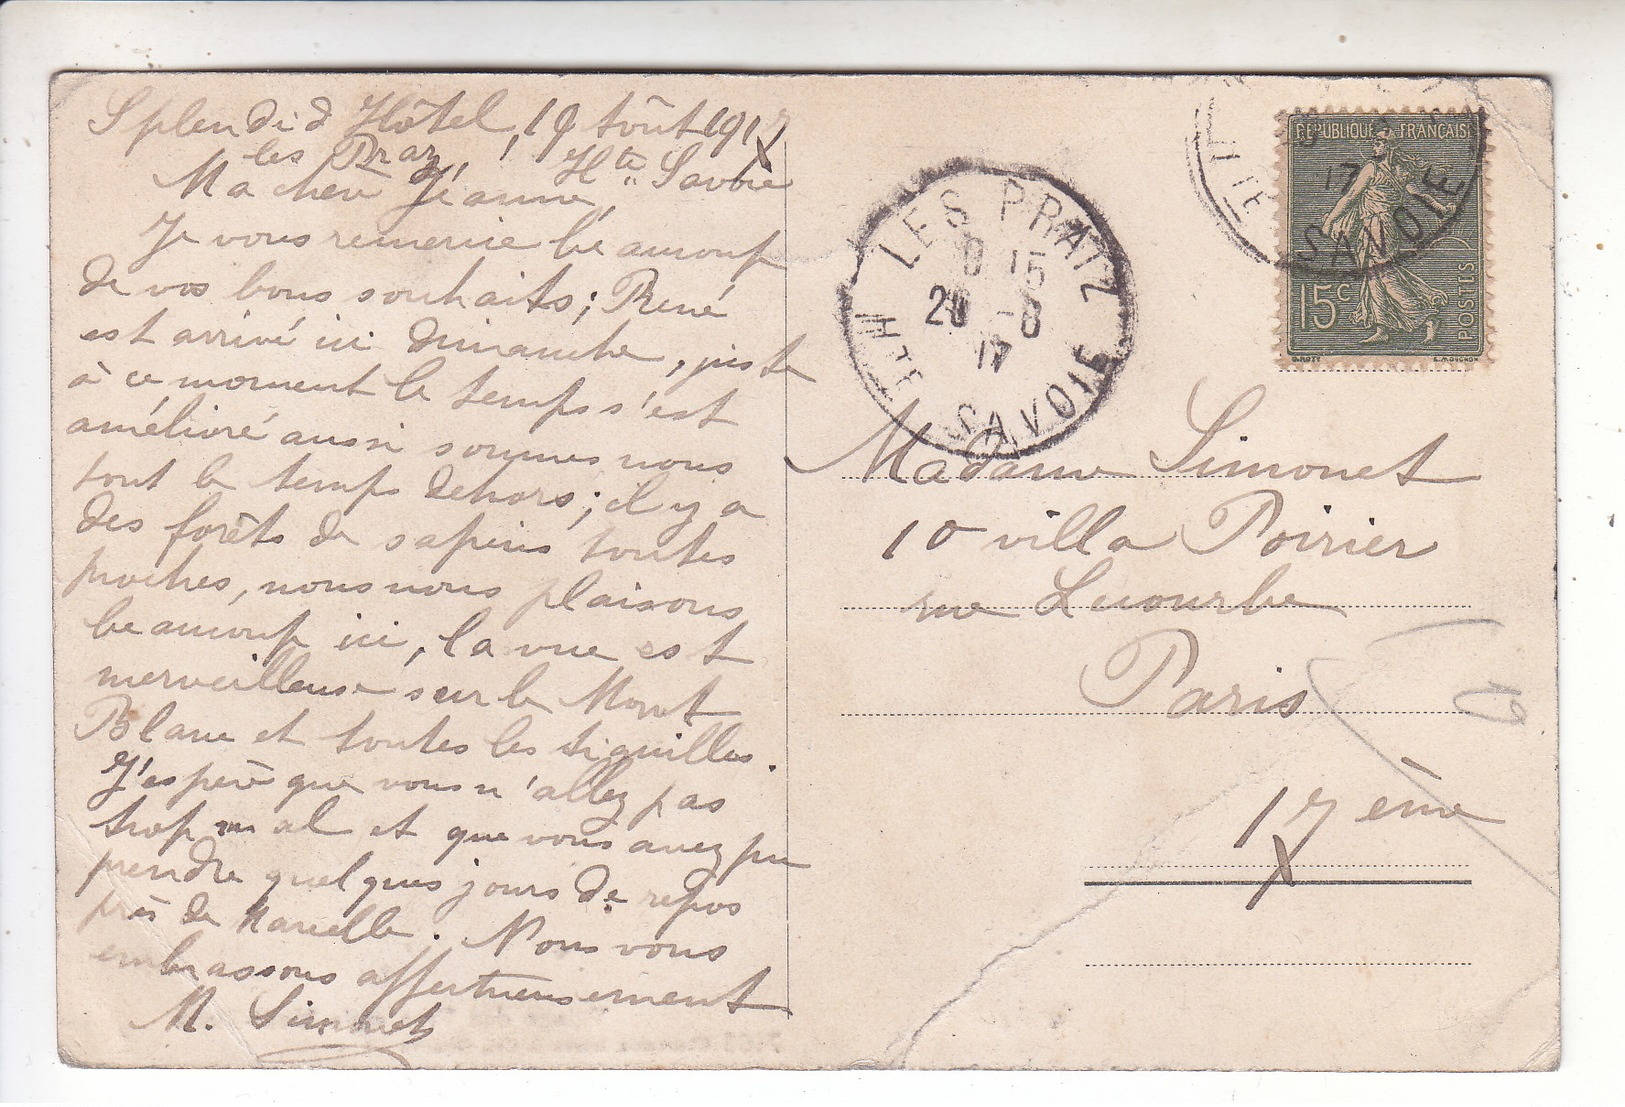 Splendid Hôtel, 19 Août 1917
les Praz, Hte Savoie
Ma chère Jeanne,
Je vous remercie beaucoup
de vos bons souhaits; René
est arrivé ici dimanche, juste
à ce moment le temps s'est
amélioré aussi sommes nous
tout le temps dehors; il y a
des forêts de sapins toutes
proches, nous nous plaisons
beaucoup ici, la vue est
merveilleuse sur le Mont
Blanc et toutes les Aiguilles.
J'espère que vous n'allez pas
trop mal et que vous avez pu
prendre quelques jours de repos
près de Marcelle. Nous vous
embrassons affectueusement
M. Simonet
LES PRATZ
15
20 -8
17
HTE SAVOIE
17
HTE SAVOIE
REPUBLIQUE FRANÇAISE
15c
POSTES
O.ROTY E.MOUCHON
Madame Simonet
10 villa Poirier
rue Lecourbe
Paris
17ème
X